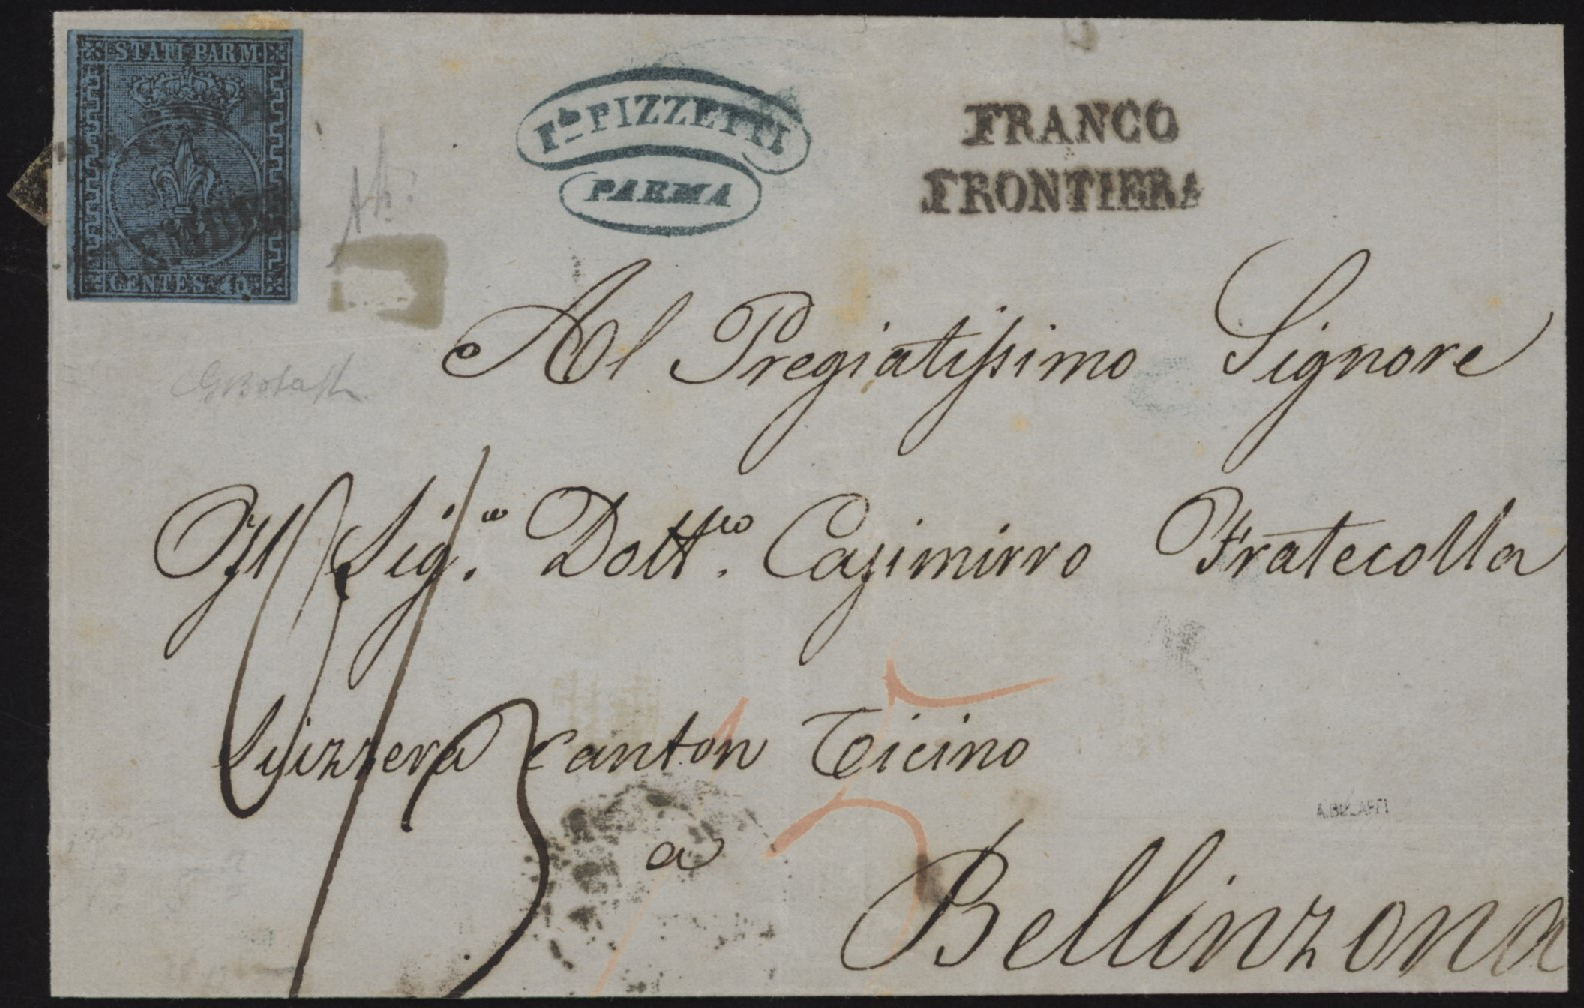 STATI PARM.
CENTES. 40
F.lo PIZZETTI
PARMA
FRANCO
FRONTIERA
Al Pregiatissimo Signore
Il Sig.re Dott.re Casimirro Fratecolla
Svizzera Canton Ticino
a
Bellinzona